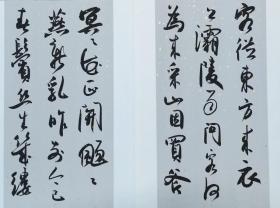 客從東方來衣
上灞陵雨問客何
為來采山因買斧
冥〻花正開颺〻
燕新乳昨别今已
春鬢絲生幾縷